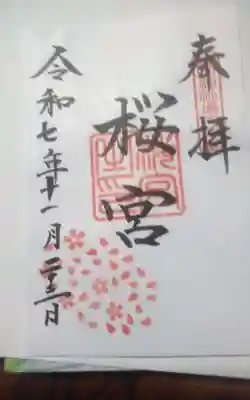 奉拝
桜宮
令和七年十一月二十三日